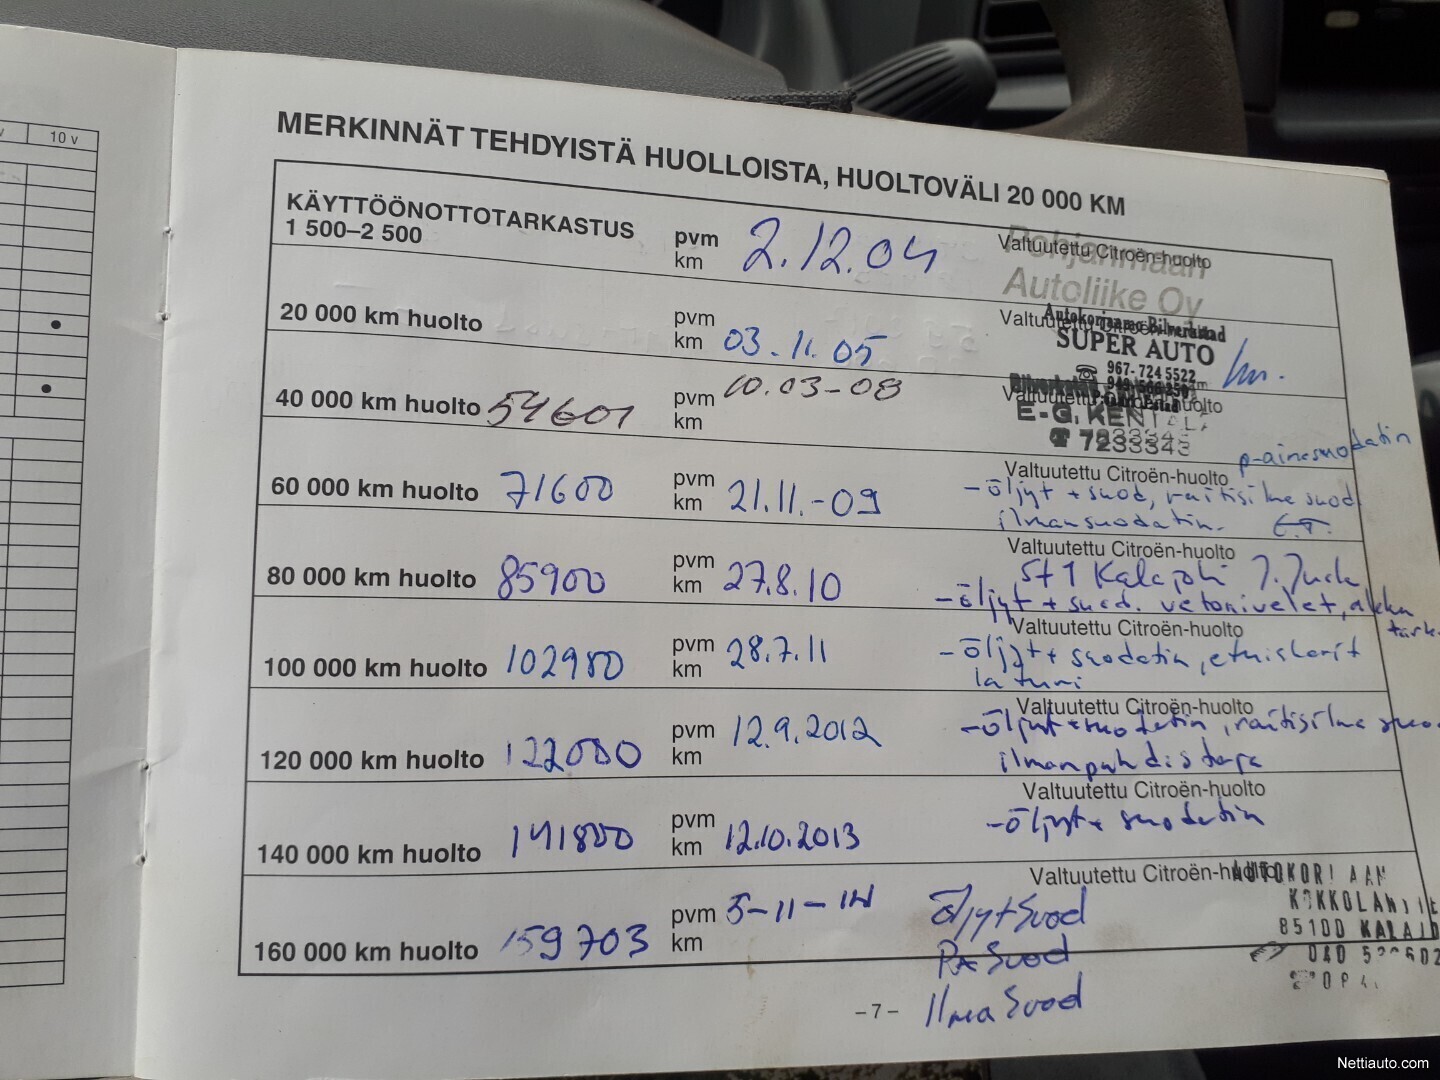 v
10 v
MERKINNÄT TEHDYISTÄ HUOLLOISTA, HUOLTOVÄLI 20 000 KM
KÄYTTÖÖNOTTOTARKASTUS
1 500–2 500
pvm 2.12.04
km
Valtuutettu Citroën-huolto
Pohjanmaan
Autoliike Oy
20 000 km huolto
pvm
km 03.11.05
Valtuutettu Citroën-huolto
SUPER AUTO
967-724 5522
40 000 km huolto 54601
pvm 10.03-08
km
Valtuutettu Citroën-huolto
E-G. KENTALA
7233343
60 000 km huolto 71600
pvm
km 21.11.-09
Valtuutettu Citroën-huolto
p-ainesuodatin
-öljyt + suod, raitisilma suod
ilmansuodatin. E.T.
80 000 km huolto 85900
pvm
km 27.8.10
Valtuutettu Citroën-huolto
St1 Kalajoki
-öljyt + suod. vetonivelet, akku
tark.
100 000 km huolto 102980
pvm
km 28.7.11
Valtuutettu Citroën-huolto
-öljyt + suodatin, etuiskarit
laturi
120 000 km huolto 122000
pvm 12.9.2012
km
Valtuutettu Citroën-huolto
-öljyt + suodatin, raitisilma suo
ilmanpuhdistaja
140 000 km huolto 141800
pvm
km 12.10.2013
Valtuutettu Citroën-huolto
-öljyt + suodatin
160 000 km huolto 159703
pvm 5-11-14
km
Valtuutettu Citroën-huolto
öljyt Suod
PA Suod
Ilma Suod
85100 KALAJO
– 7 –
Nettiauto.com